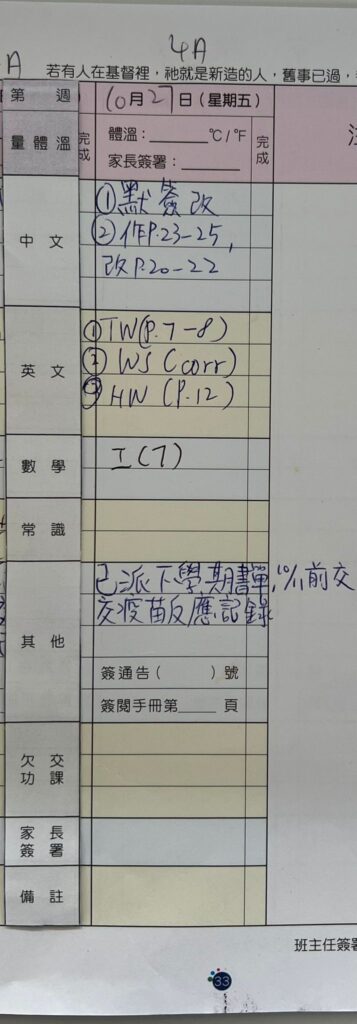 4A
A
若有人在基督裡，祂就是新造的人，舊事已過，
第 週
10月27日(星期五)
量體溫
完成
體溫：______°C/°F
家長簽署：______
完成
中文
①默簽改
②作P.23-25，
改P.20-22
英文
①TW(P.7-8)
②WS(corr)
③HW(P.12)
數學
工(7)
常識
其他
已派下學期書單，10/11前交
交疫苗反應記錄
簽通告( )號
簽閱手冊第____頁
欠交功課
家長簽署
備註
班主任簽署
33